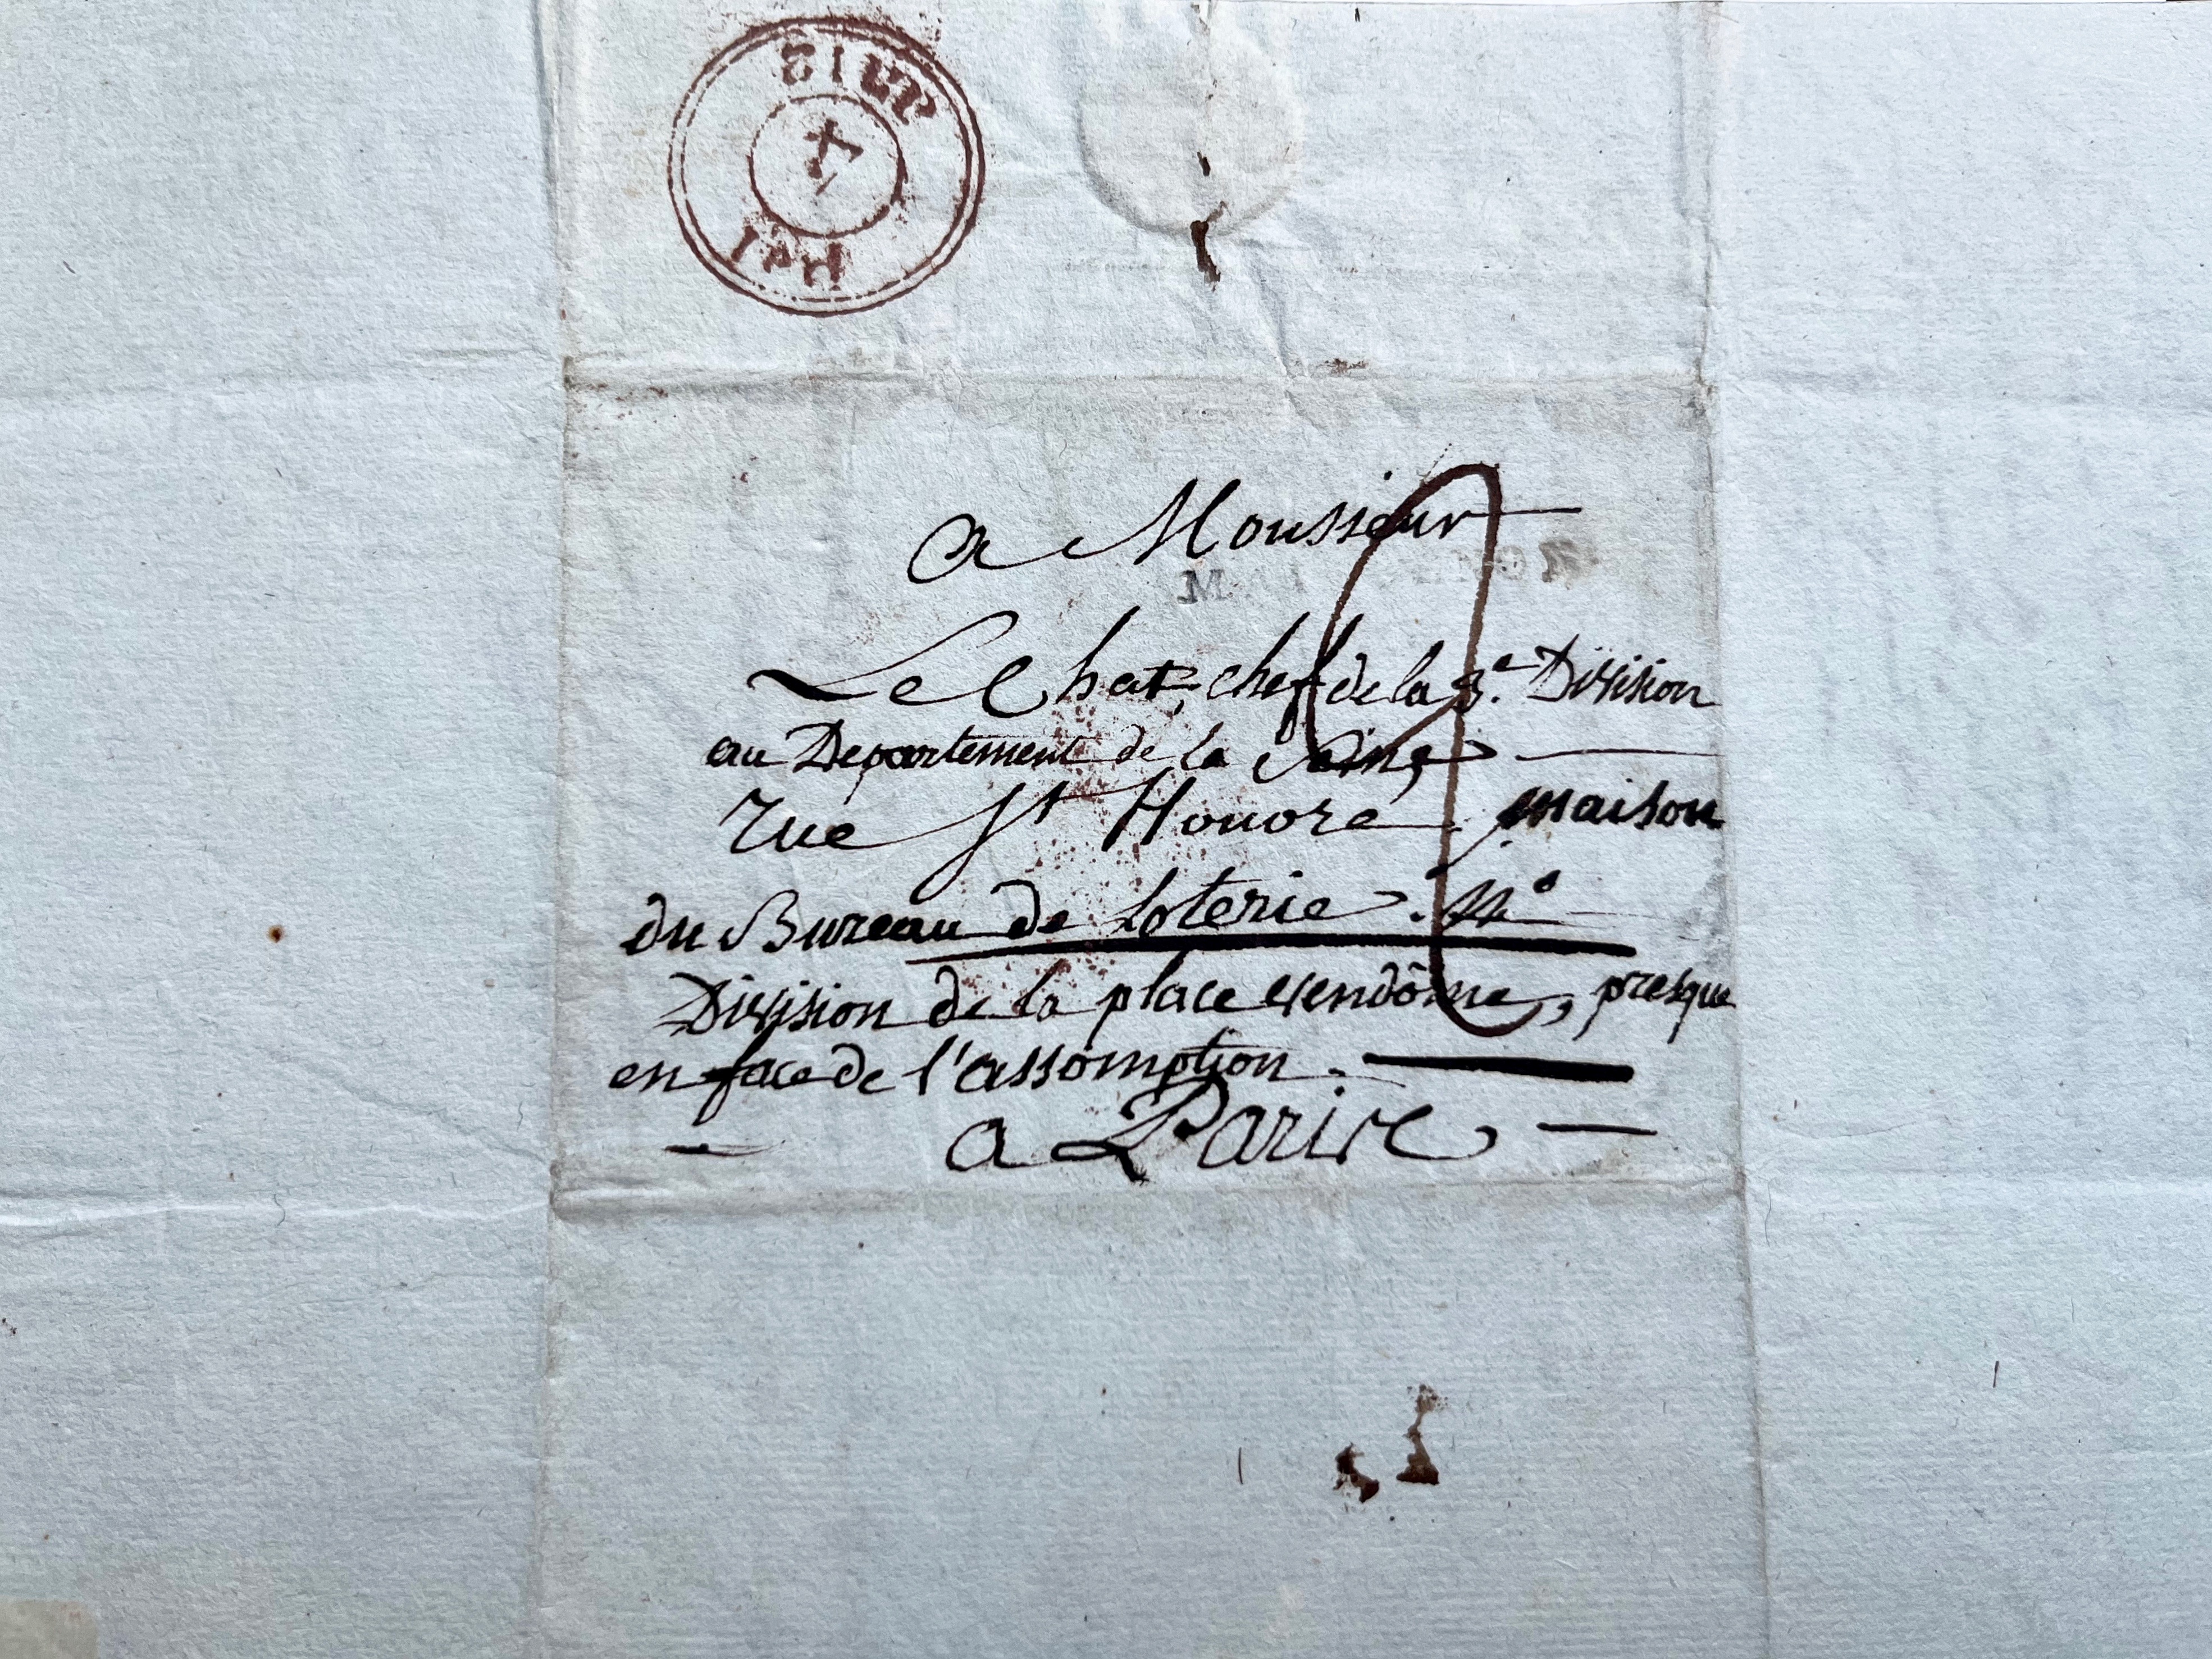 a Monsieur
Le Chat, chef de la 3.e Division
au Departement de la Seine
rue St Honoré, maison
du Bureau de Loterie. N.o
Division de la place vendôme, presque
en face de l'assomption.
a Paris